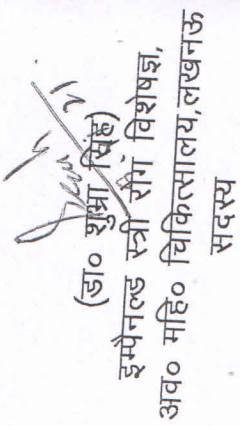 (डा० शुभ्रा सिंह)
इम्पैनल्ड स्त्री रोग विशेषज्ञ,
अव० महि० चिकित्सालय,लखनऊ
सदस्य